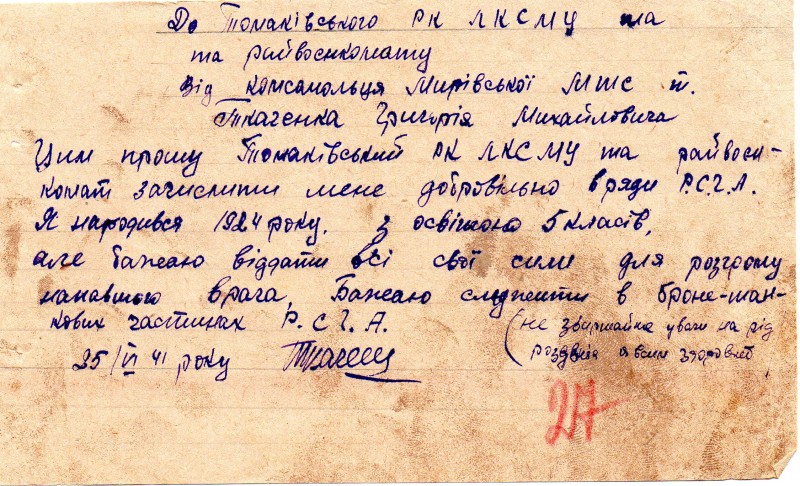 До Томаківського РК ЛКСМУ та
та райвоєнкомату
Від комсомольця Мирівської МТС т.
Ткаченка Григорія Михайловича
Цим прошу Томаківський РК ЛКСМУ та райвоєн-
комат зачислити мене добровільно в ряди Р.С.Ч.А.
Я народився 1924 року. з освітою 5 класів,
але бажаю віддати всі свої сили для розгрому
напавшого врага, Бажаю служити в броне-тан-
кових частинах Р.С.Ч.А.
(не уваги на рід
я здоровий
25/VI 41 року
27